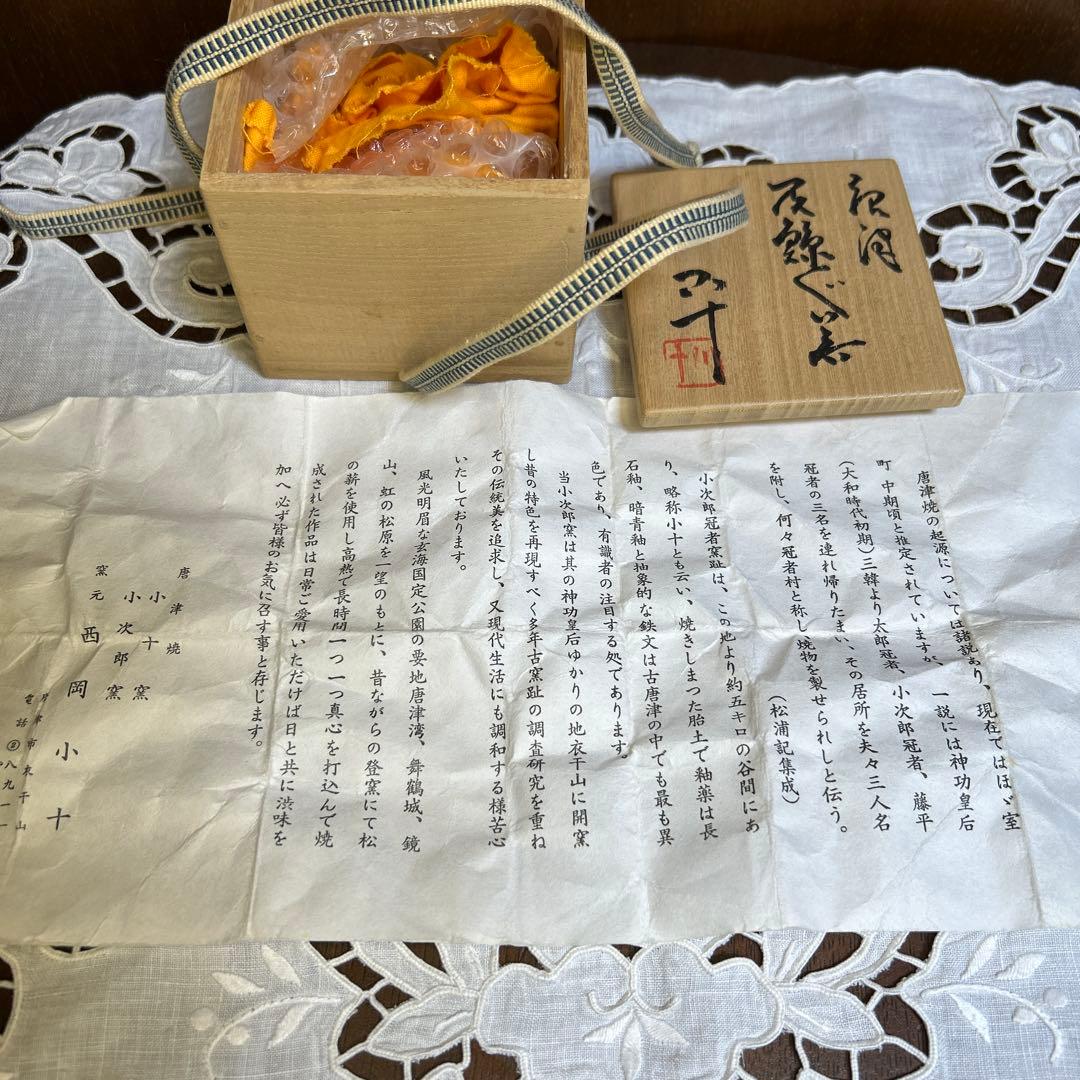 唐津
皮鯨ぐい呑
小十
唐津焼の起源については諸説あり、現在ではほゞ室
町 中期頃と推定されていますが、一説には神功皇后
(大和時代初期)三韓より太郎冠者、小次郎冠者、藤平
冠者の三名を連れ帰りたまい、その居所を夫々三人名
を附し、何々冠者村と称し焼物を製せられしと伝う。
(松浦記集成)
小次郎冠者窯趾は、この地より約五キロの谷間にあ
り、略称小十とも云い、焼きしまつた胎土で釉薬は長
石釉、暗青釉と抽象的な鉄文は古唐津の中でも最も異
色であり、有識者の注目する処であります。
当小次郎窯は其の神功皇后ゆかりの地衣干山に開窯
し昔の特色を再現すべく多年古窯趾の調査研究を重ね
その伝統美を追求し、又現代生活にも調和する様苦心
いたしております。
風光明眉な玄海国定公園の要地唐津湾、舞鶴城、鏡
山、虹の松原を一望のもとに、昔ながらの登窯にて松
の薪を使用し高熱で長時間一つ一つ真心を打込んで焼
成された作品は日常ご愛用いただけば日と共に渋味を
加へ必ず皆様のお気に召す事と存じます。
唐津焼
小十窯
小次郎窯
窯元 西岡小十
唐津市東干山
電話②八九一一